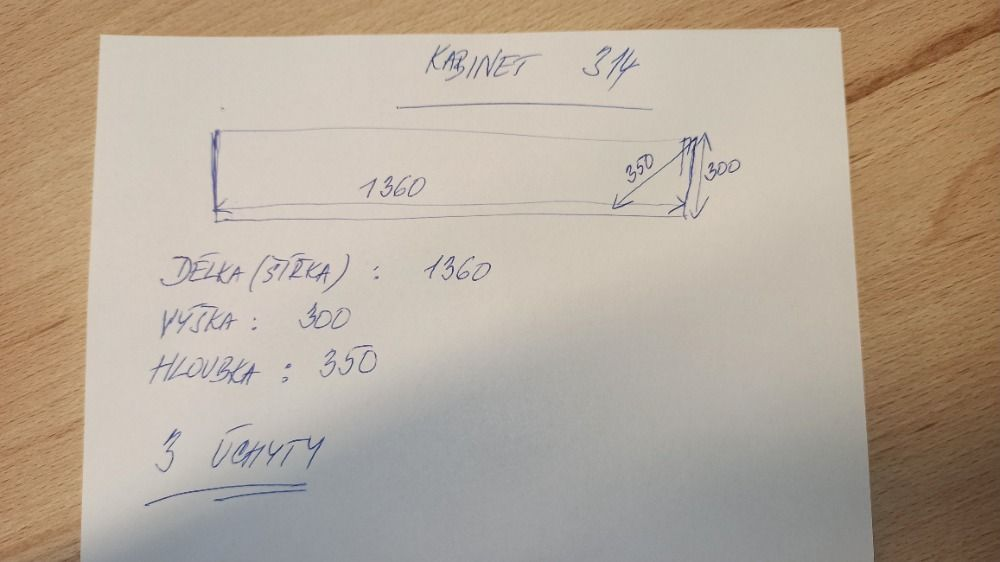 KABINET 314
350
300
1360
DÉLKA (ŠÍŘKA) : 1360
VÝŠKA : 300
HLOUBKA : 350
3 ÚCHYTY